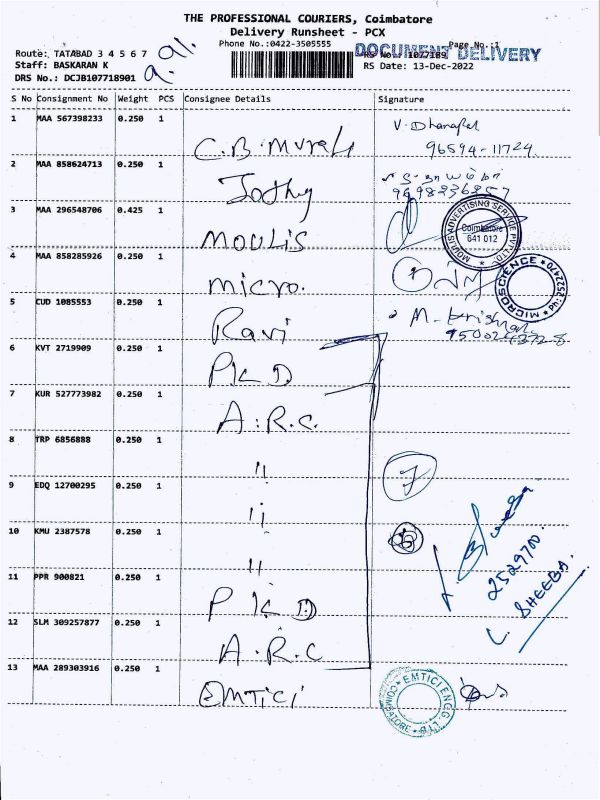 THE PROFESSIONAL COURIERS, Coimbatore
Delivery Runsheet - PCX
Phone No.:0422-3505555
Page No.:1
DOCUMENT DELIVERY
Route: TATABAD 3 4 5 6 7
RS No.: 1077189
Staff: BASKARAN K
RS Date: 13-Dec-2022
DRS No.: DCJB107718901
S No Consignment No Weight PCS Consignee Details Signature
1 MAA 567398233 0.250 1 C.B. Murali V. Dhanapal
96594-11724
2 MAA 858624713 0.250 1 Jothy
9498236257
3 MAA 296548706 0.425 1 MOULIS
MOULIS ADVERTISING SERVICE PVT LTD. Coimbatore 641 012
4 MAA 858285926 0.250 1 micro.
MICROSCIENCE
5 CUD 1085553 0.250 1 Ravi M. Krishnan
6 KVT 2719909 0.250 1 P K D
7 KUR 527773982 0.250 1 A.R.C.
8 TRP 6856888 0.250 1 "
7
9 EDQ 12700295 0.250 1 "
10 KMU 2387578 0.250 1 "
2529700.
SHEEBA.
11 PPR 900821 0.250 1 P K D
12 SLM 309257877 0.250 1 A.R.C
13 MAA 289303916 0.250 1 EMTICI
EMTICI ENGG. LTD COIMBATORE